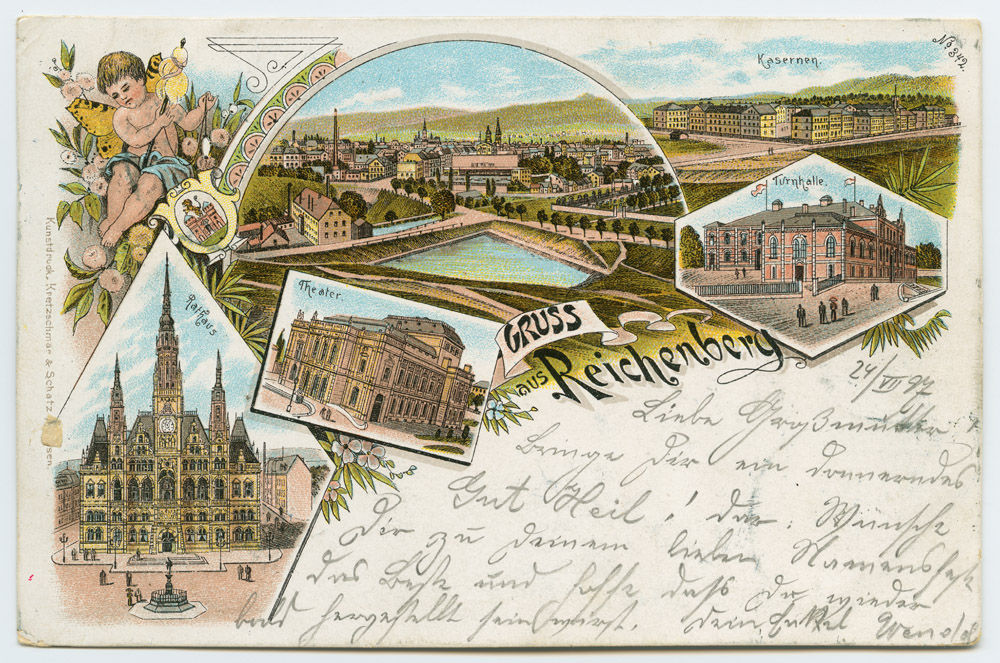 No 342.
Kasernen.
Turnhalle.
Rathaus
Theater.
GRUSS
aus Reichenberg
Kunstdruck, Kretzschmar & Schatz
sen.
24/VII 97
Liebe Großmutter
bringe Dir ein donnerndes
Gut Heil! dar, Wünsche
Dir zu Deinem lieben Namensfest
das Beste und hoffe dass du wieder
bald hergestellt sein wirst. Dein Enkel